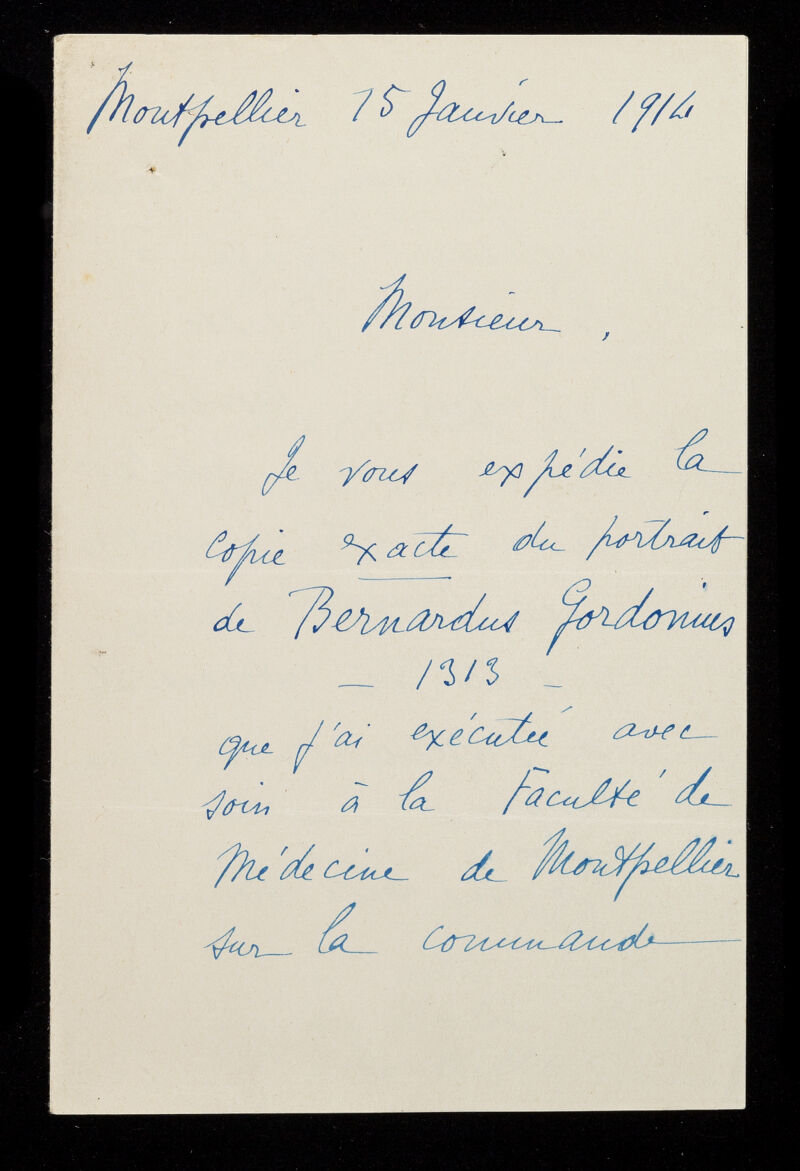 Montpellier 15 Janvier 1914
Monsieur,
Je vous expédie la
copie exacte du portrait
de Bernardus Gordonius
— 1313 —
que j'ai exécutée avec
soin à la Faculté de
Médecine de Montpellier
sur la commande